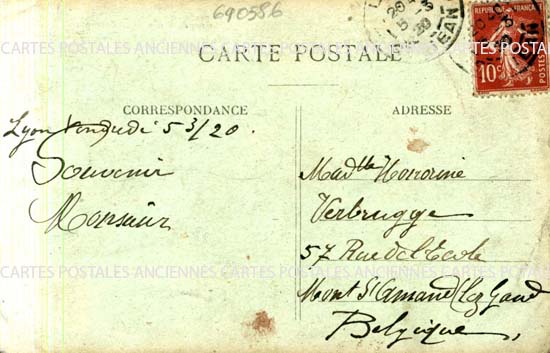 690586
CARTE POSTALE
CORRESPONDANCE
ADRESSE
Lyon Vendredi 5 3/20.
Souvenir
Monsieur
Mad^lle Honorine
Verbrugge
57 Rue de l'Ecole
Mont St Amand (lez Gand
Belgique
10c
CARTES POSTALES ANCIENNES CARTES POSTALES ANCIENNES CARTES POSTALES ANCIENNES
CARTES POSTALES ANCIENNES CARTES POSTALES ANCIENNES CARTES POSTALES ANCIENNES